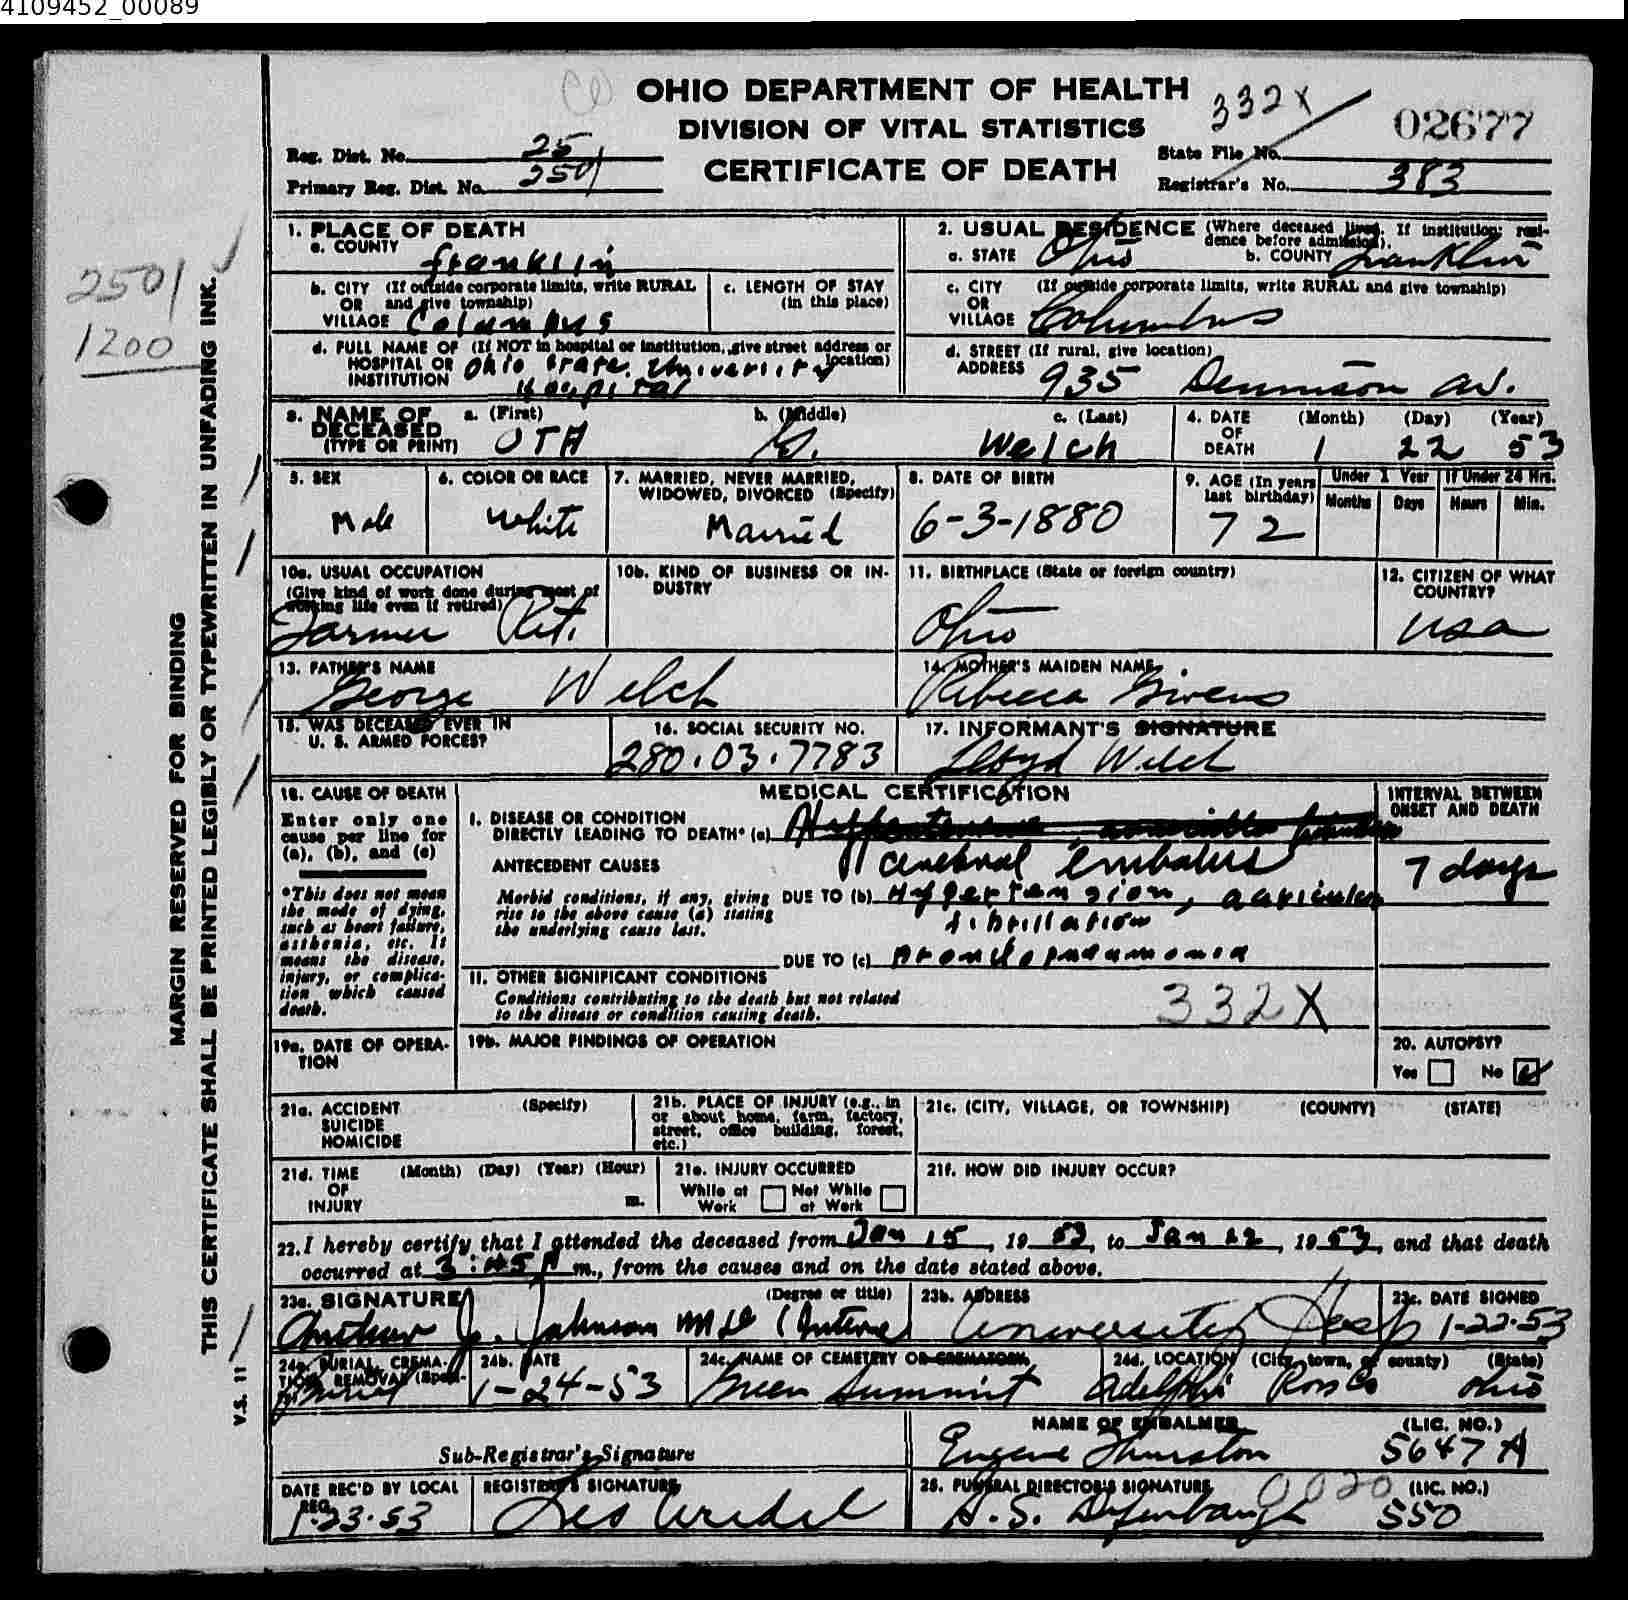 4109452_00089
OHIO DEPARTMENT OF HEALTH
DIVISION OF VITAL STATISTICS
CERTIFICATE OF DEATH
332X
02677
Reg. Dist. No. 25
Primary Reg. Dist. No. 2501
State File No.
Registrar's No. 383
2501
1200
MARGIN RESERVED FOR BINDING
THIS CERTIFICATE SHALL BE PRINTED LEGIBLY OR TYPEWRITTEN IN UNFADING INK.
V.S. 11
1. PLACE OF DEATH
a. COUNTY Franklin
b. CITY (If outside corporate limits, write RURAL
OR and give township)
VILLAGE Columbus
c. LENGTH OF STAY
(in this place)
d. FULL NAME OF (If NOT in hospital or institution, give street address or
HOSPITAL OR location)
INSTITUTION Ohio State University
Hospital
2. USUAL RESIDENCE (Where deceased lived. If institution: resi-
dence before admission).
a. STATE Ohio b. COUNTY Franklin
c. CITY (If outside corporate limits, write RURAL and give township)
OR
VILLAGE Columbus
d. STREET (If rural, give location)
ADDRESS 935 Dennison av.
3. NAME OF a. (First) b. (Middle) c. (Last)
DECEASED
(TYPE OR PRINT) OTA G. Welch
4. DATE (Month) (Day) (Year)
OF
DEATH 1 22 53
5. SEX
Male
6. COLOR OR RACE
White
7. MARRIED, NEVER MARRIED,
WIDOWED, DIVORCED (Specify)
Married
8. DATE OF BIRTH
6-3-1880
9. AGE (In years
last birthday)
72
Under 1 Year
Months Days
If Under 24 Hrs.
Hours Min.
10a. USUAL OCCUPATION
(Give kind of work done during most of
working life even if retired)
Farmer Ret.
10b. KIND OF BUSINESS OR IN-
DUSTRY
11. BIRTHPLACE (State or foreign country)
Ohio
12. CITIZEN OF WHAT
COUNTRY?
USA
13. FATHER'S NAME
George Welch
14. MOTHER'S MAIDEN NAME
Rebecca Givens
15. WAS DECEASED EVER IN
U. S. ARMED FORCES?
16. SOCIAL SECURITY NO.
280.03.7783
17. INFORMANT'S SIGNATURE
Lloyd Welch
18. CAUSE OF DEATH
Enter only one
cause per line for
(a), (b), and (c)
*This does not mean
the mode of dying,
such as heart failure,
asthenia, etc. It
means the disease,
injury, or complica-
tion which caused
death.
MEDICAL CERTIFICATION
I. DISEASE OR CONDITION
DIRECTLY LEADING TO DEATH* (a) Hypertension, auricular
cerebral embolus
ANTECEDENT CAUSES
Morbid conditions, if any, giving
rise to the above cause (a) stating
the underlying cause last.
DUE TO (b) Hypertension, auricular
fibrillation
DUE TO (c) Bronchopneumonia
INTERVAL BETWEEN
ONSET AND DEATH
7 days
II. OTHER SIGNIFICANT CONDITIONS
Conditions contributing to the death but not related
to the disease or condition causing death.
332X
19a. DATE OF OPERA-
TION
19b. MAJOR FINDINGS OF OPERATION
20. AUTOPSY?
Yes No
21a. ACCIDENT (Specify)
SUICIDE
HOMICIDE
21b. PLACE OF INJURY (e.g., in
or about home, farm, factory,
street, office building, forest,
etc.)
21c. (CITY, VILLAGE, OR TOWNSHIP) (COUNTY) (STATE)
21d. TIME (Month) (Day) (Year) (Hour)
OF
INJURY m.
21e. INJURY OCCURRED
While at Work Not While at Work
21f. HOW DID INJURY OCCUR?
22. I hereby certify that I attended the deceased from Jan 15, 19 53, to Jan 22, 19 53, and that death
occurred at 3:45 P m., from the causes and on the date stated above.
23a. SIGNATURE (Degree or title)
Arthur J. Johnson MD (Intern)
23b. ADDRESS
University Hosp
23c. DATE SIGNED
1-22-53
24a. BURIAL, CREMA-
TION, REMOVAL (Spec-
ify) Burial
24b. DATE
1-24-53
24c. NAME OF CEMETERY OR CREMATORY
Green Summit
24d. LOCATION (City, town, or county) (State)
Adelphi Ross Co Ohio
Sub-Registrar's Signature
NAME OF EMBALMER (LIC. NO.)
Eugene Thurston 5647A
DATE REC'D BY LOCAL
REG.
1-23-53
REGISTRAR'S SIGNATURE
25. FUNERAL DIRECTOR'S SIGNATURE (LIC. NO.)
0020
H. S. Defenbaugh 550